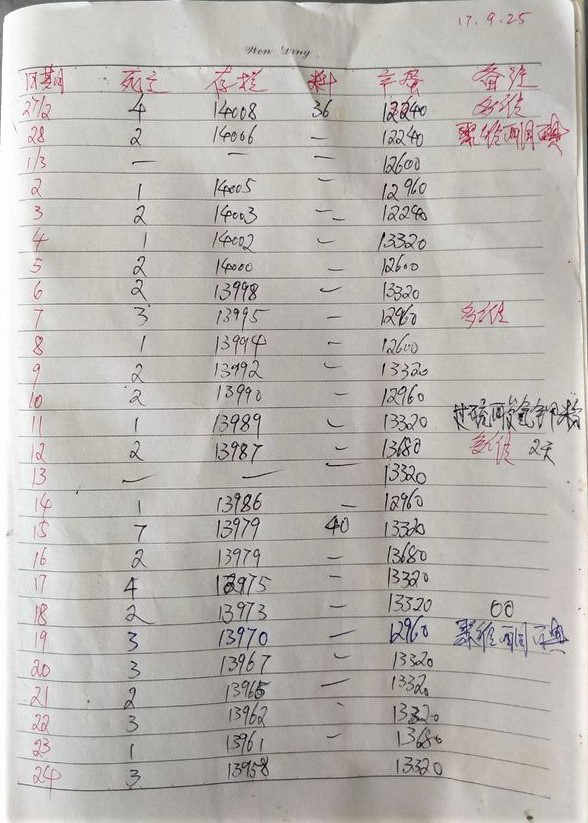 17.9.25
Won Ding
日期 死亡 存栏 料 产蛋 备注
27/2 4 14008 36 12240 多维
28 2 14006 — 12240 聚维酮碘
1/3 — — — 12600
2 1 14005 — 12960
3 2 14003 — 12240
4 1 14002 — 13320
5 2 14000 — 12600
6 2 13998 — 13320
7 3 13995 — 12960 多维
8 1 13994 — 12600
9 2 13992 — 13320
10 2 13990 — 12960
11 1 13989 — 13320
12 2 13987 — 13680 多维 2天
13 — — — 13320
14 1 13986 — 12960
15 7 13979 40 13320
16 2 13979 — 13680
17 4 13975 — 13320
18 2 13973 — 13320 00
19 3 13970 — 12960 聚维酮碘
20 3 13967 — 13320
21 2 13965 — 13320
22 3 13962 13320
23 1 13961 — 13680
24 3 13958 13320